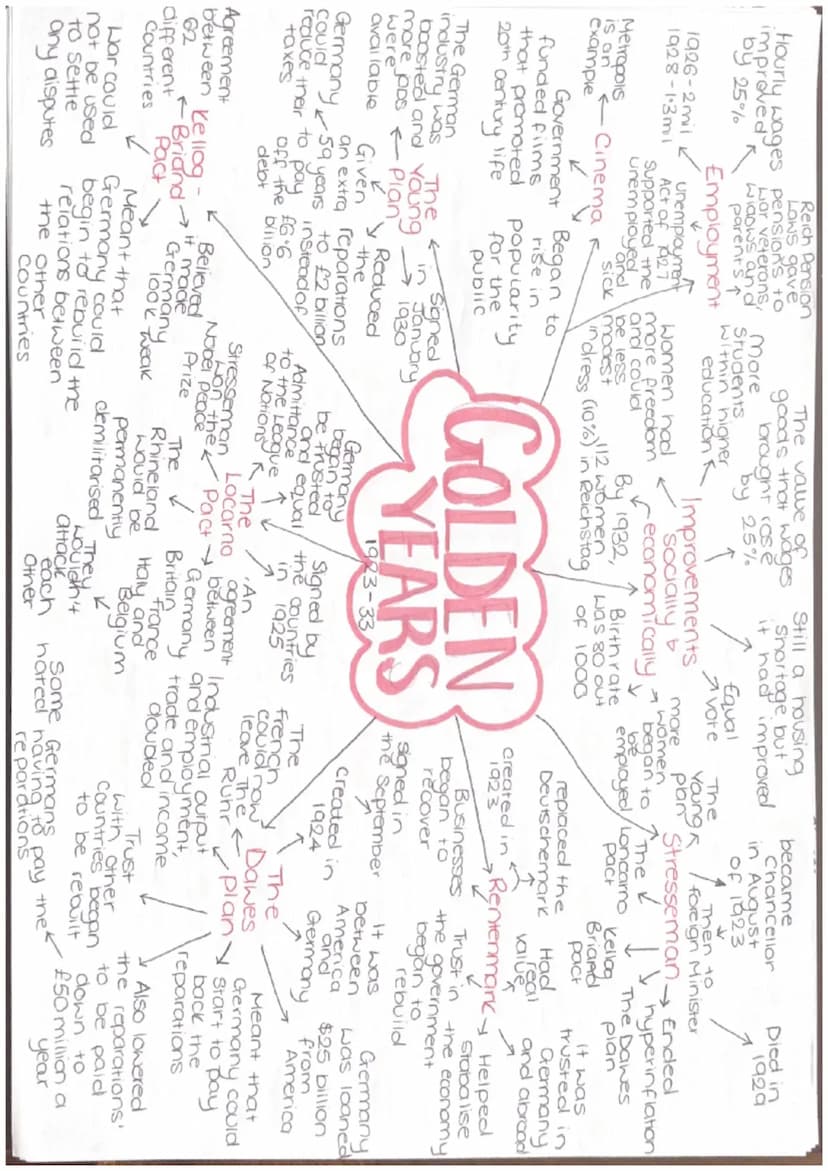 GOLDEN
YEARS
1923-33
Employment
Hourly wages
improved
by 25%
1926-2mil
1928-1.3mil
Reich Pension
Laws gave
pensions to
war veterans,
widows and
parents
unemployment
Act of 1927
supported the
unemployed
and
sick
Cinema
Metropolis
is an
example
Government
funded films
that promoted
20th century life
Began to
rise in
popularity
for the
public
The
Young
Plan
The German
industry was
boosted and
more jobs
were
available
Germany
could
reduce their
taxes
Given
an extra
59 years
to pay
off the
debt
Reduced
the
reparations
to £2 billion
instead of
£6.6
billion
Signed
in
January
1930
Kellog -
Briand
Pact
Agreement
between
62
different
Countries
War could
not be used
to settle
any disputes
Meant that
Germany could
begin to rebuild the
relations between
the other
Countries
Believed
it made
Germany
look weak
The
Locarno
Pact
Stresseman
won the
Nobel Peace
Prize
Admittance
to the League
of Nations
Germany
began to
be trusted
and equal
Signed by
the countries
in 1925
An
agreement
between
Germany
Britain
France
Italy and
Belgium
They
wouldn't
attack
each
other
The
Rhineland
would be
permanently
demilitarised
Improvements
socially &
economically
The value of
goods that wages
brought rose
by 25%
Still a housing
shortage but
it had improved
Equal
vote
more
women
began to
be
employed
Birth rate
was 80 out
of 1000
By 1932,
112 women
(10%) in Reichstag
Women had
more freedom
and could
be less
modest
in dress
More
students
within higher
education
Stresseman
became
Chancellor
in August
of 1923
Then to
foreign Minister
Died in
1929
Ended
hyperinflation
The Dawes
plan
Kellog
Briand
pact
The
Loncarno
pact
The
Young
plan
Rentenmark
replaced the
Deutschemark
created in
1923
Had
real
value
it was
trusted in
Germany
and abroad
Helped
stabalise
the economy
Trust in
the government
began to
rebuild
Businesses
began to
recover
The
Dawes
Plan
signed in
the September
Created in
1924
It was
between
America
and
Germany
Germany
was loaned
$25 billion
from
America
Meant that
Germany could
start to pay
back the
reparations
Also lowered
the reparations'
to be paid
down to
£50 million a
year
Some
Germans
hated having to pay the
reparations
Trust
with other
countries began
to be rebuilt
Industrial output
and employment,
trade and income
doubled
The
French
could now
leave The
Ruhr